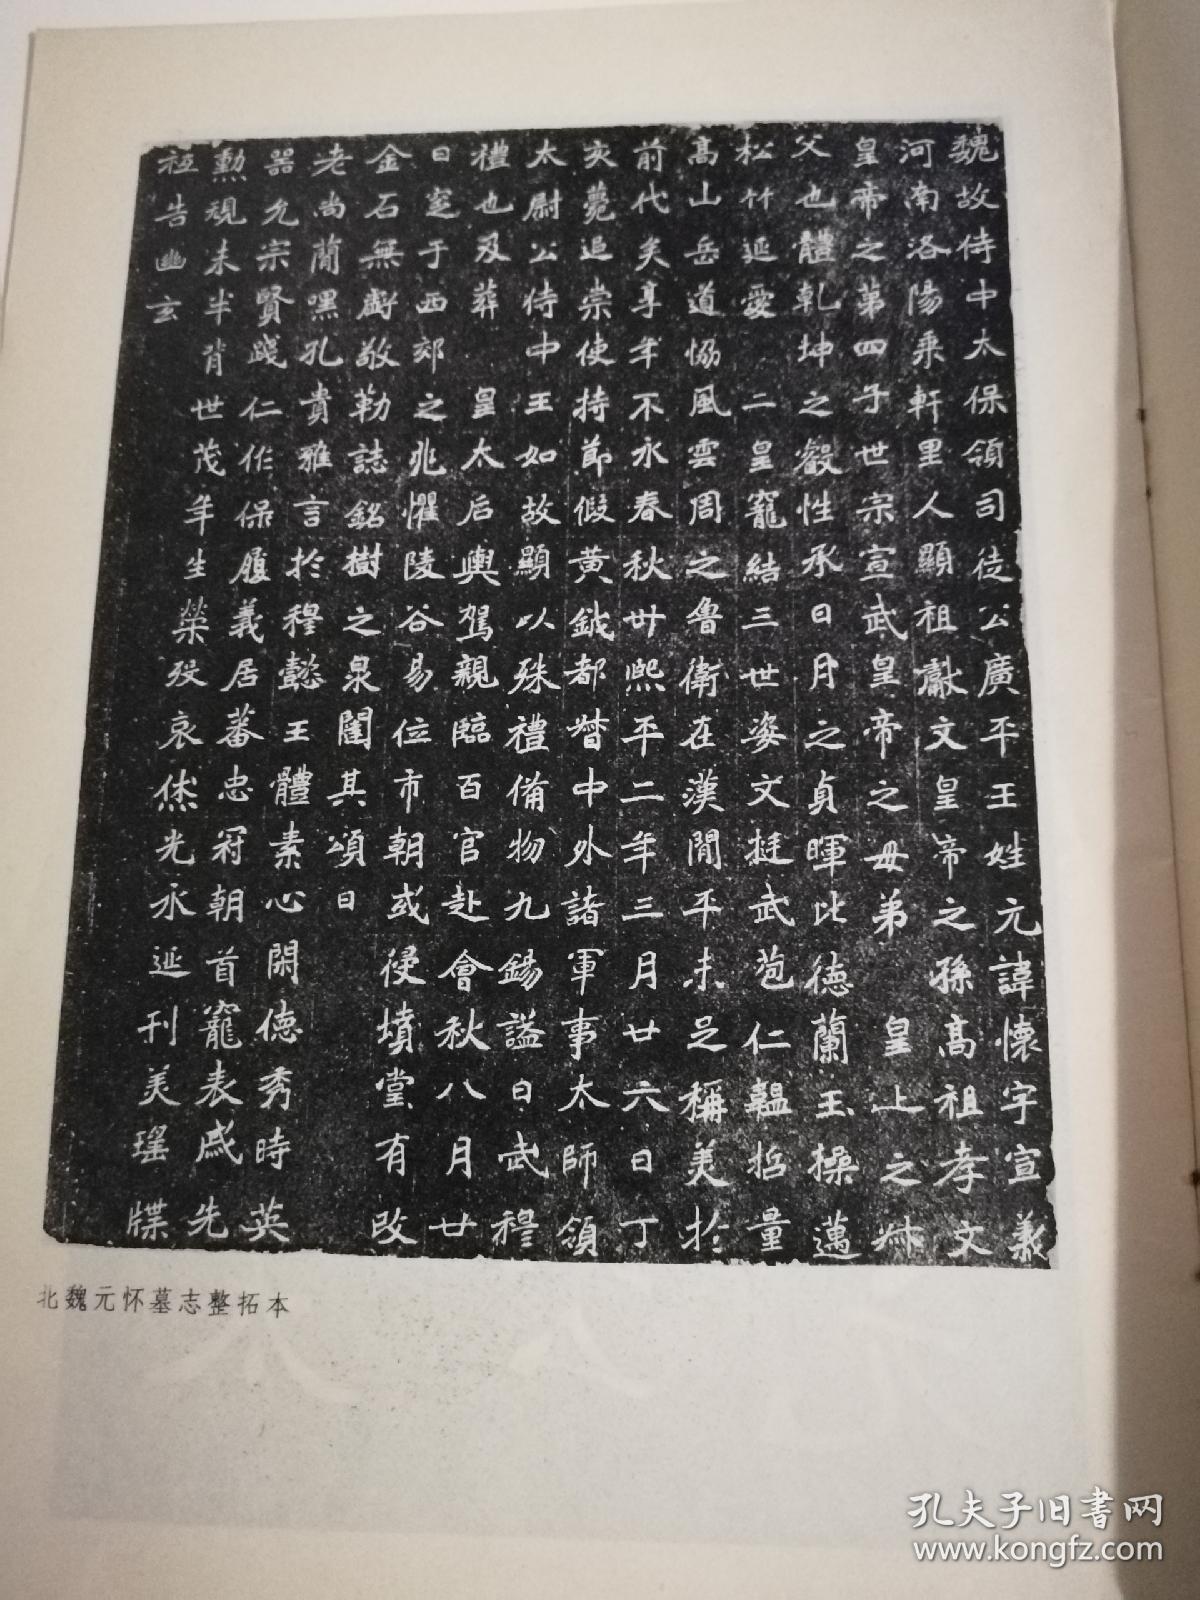 魏故侍中太保領司徒公廣平王姓元諱懷字宣義
河南洛陽乘軒里人顯祖獻文皇帝之孫高祖孝文
皇帝之第四子世宗宣武皇帝之母弟 皇上之叔
父也體乾坤之叡性承日月之貞暉比德蘭玉操邁
松竹延愛 二皇寵結三世姿文挺武苞仁韞哲量
高山岳道協風雲周之魯衛在漢閒平未足稱美於
前代矣享年不永春秋卅熙平二年三月廿六日丁
亥薨追崇使持節假黃鉞都督中外諸軍事太師領
太尉公侍中王如故顯以殊禮備物九錫謚曰武穆
禮也及葬 皇太后輿駕親臨百官赴會秋八月廿
日窆于西郊之兆懼陵谷易位市朝或侵墳堂有改
金石無虧敬勒誌銘樹之泉闥其頌曰
老尚簡嘿孔貴雅言於穆懿王體素心閑德秀時英
器允宗賢踐仁作保履義居蕃忠冠朝首寵表戚先
勳視未半背世茂年生榮歿哀休光永延刊美瑤牒
祗告幽玄
北魏元怀墓志整拓本
孔夫子旧书网
www.kongfz.com